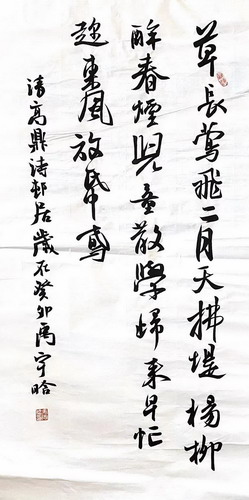 草長鶯飛二月天拂堤楊柳
醉春煙兒童散學歸来早忙
趂東風放帋鳶
清高鼎詩邨居歲在癸卯禹宇晗